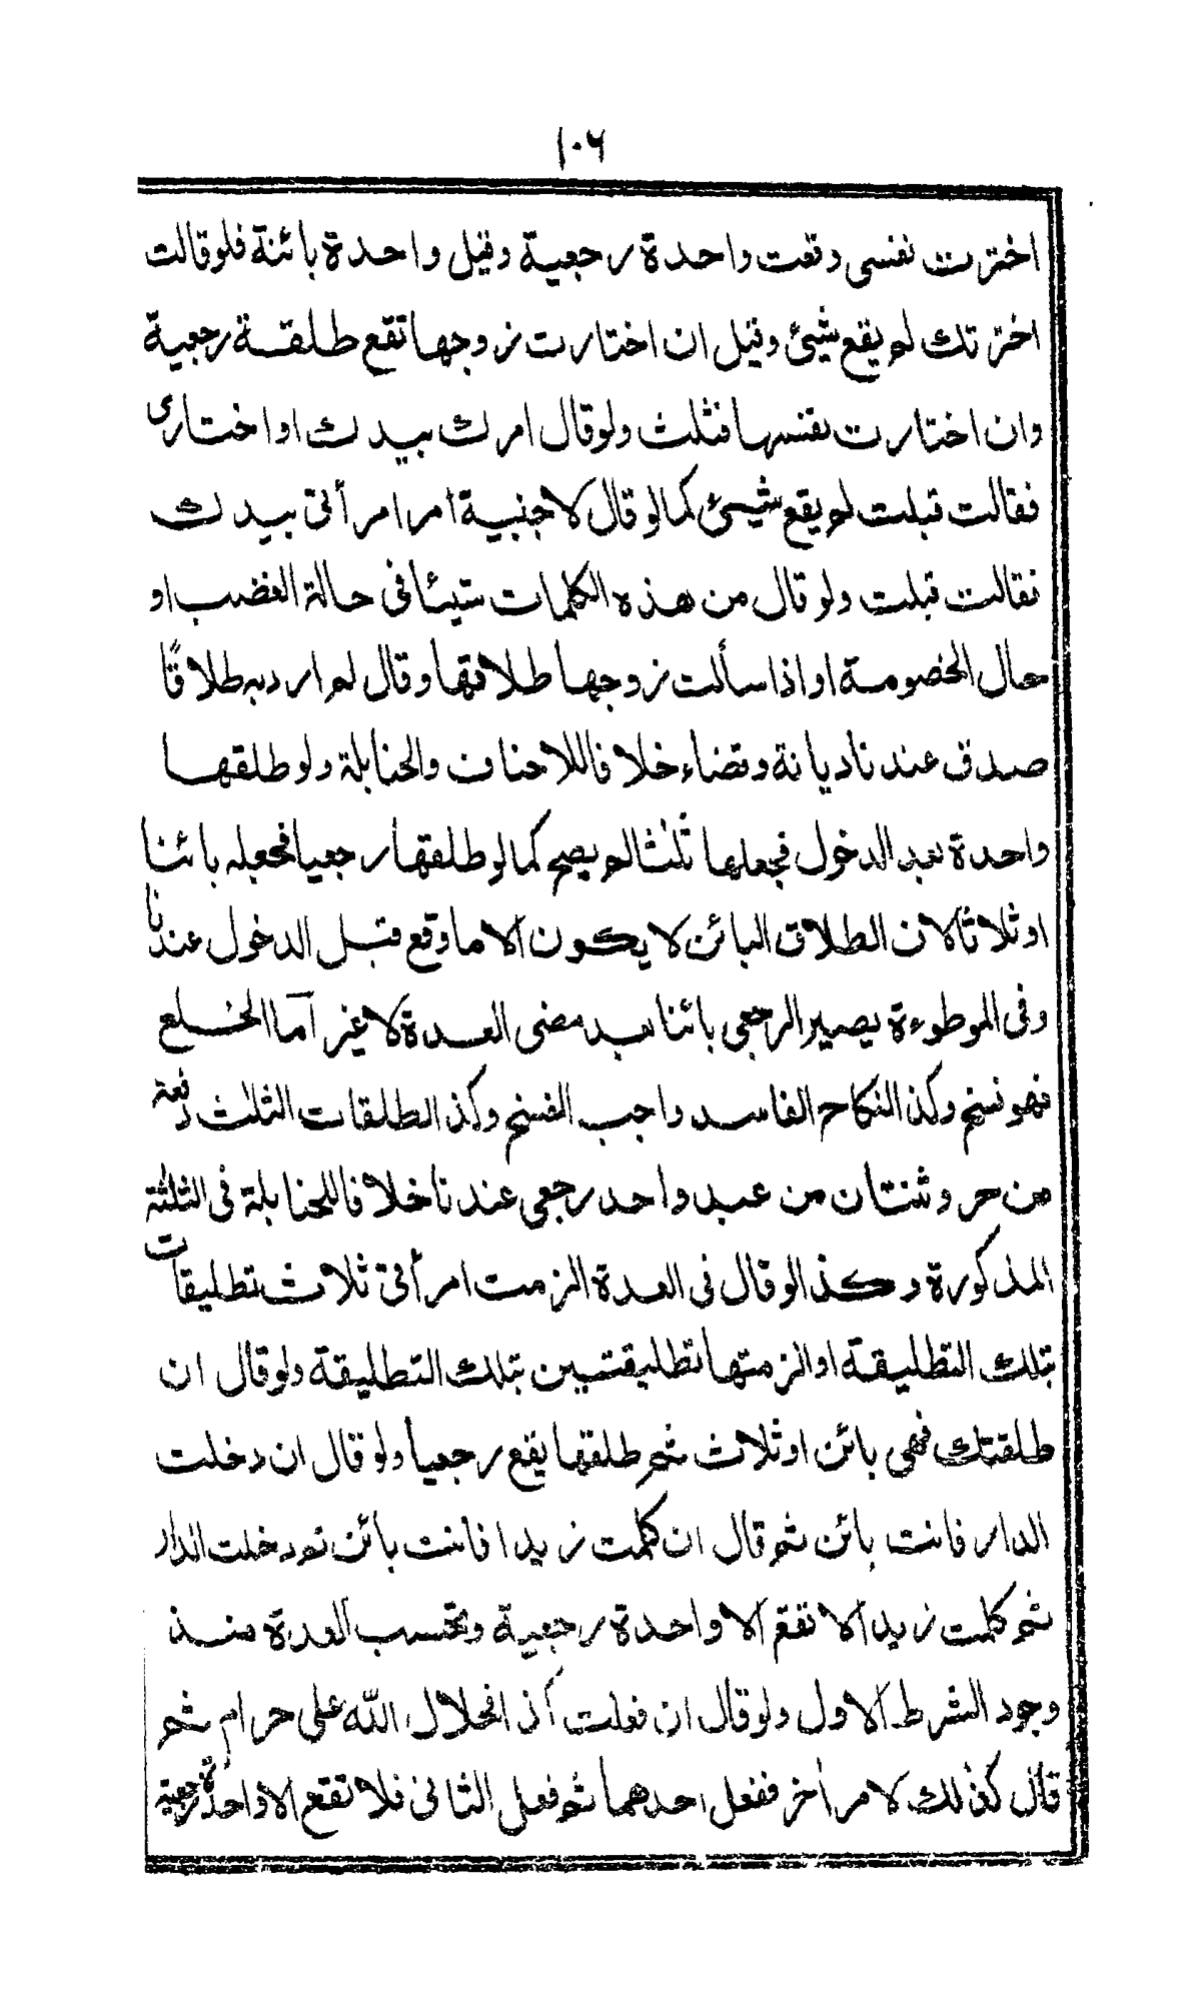 ١٠٦
اخترت نفسى وقعت واحدة رجعية وقيل واحدة بائنة فلو قالت
اخترتك لم يقع شيئ وقيل ان اختارت زوجها تقع طلقة رجعية
وان اختارت نفسها فثلث ولو قال امرك بيدك او اختارى
فقالت قبلت لم يقع شيئ كما لو قال لاجنبية امر امرأتى بيدك
فقالت قبلت ولو قال من هذه الكلمات شيئا فى حالة الغضب او
حال الخصومة او اذا سألت زوجها طلاقها وقال لم ارد به طلاقًا
صدق عندنا ديانة وقضاء خلافا للاحناف والحنابلة ولو طلقها
واحدة بعد الدخول فجعلها ثلثا لم يصح كما لو طلقها رجعيا فجعله بائنا
او ثلاثا لان الطلاق البائن لا يكون الا ما وقع قبل الدخول عندنا
وفى الموطوءة يصير الرجعى بائنا بعد مضى العدة لا غير اما الخلع
فهو فسخ وكذا النكاح الفاسد واجب الفسخ وكذا الطلقات الثلث دفعة
من حر وثنتان من عبد واحد رجعى عندنا خلافا للحنابلة فى الثلثة
المذكورة وكذا لو قال فى العدة الزمت امرأتى ثلاث تطليقات
بتلك التطليقة او الزمتها تطليقتين بتلك التطليقة ولو قال ان
طلقتك فهى بائن او ثلاث ثم طلقها يقع رجعيا ولو قال ان دخلت
الدار فانت بائن ثم قال ان كلمت زيدا فانت بائن ثم دخلت الدار
ثم كلمت زيدا لا تقع الا واحدة رجعية وتحسب العدة منذ
وجود الشرط الاول ولو قال ان فعلت كذا فحلال الله على حرام ثم
قال كذلك لامر أخر ففعل احدهما ثم فعل الثانى فلا تقع الا واحدة رجعية